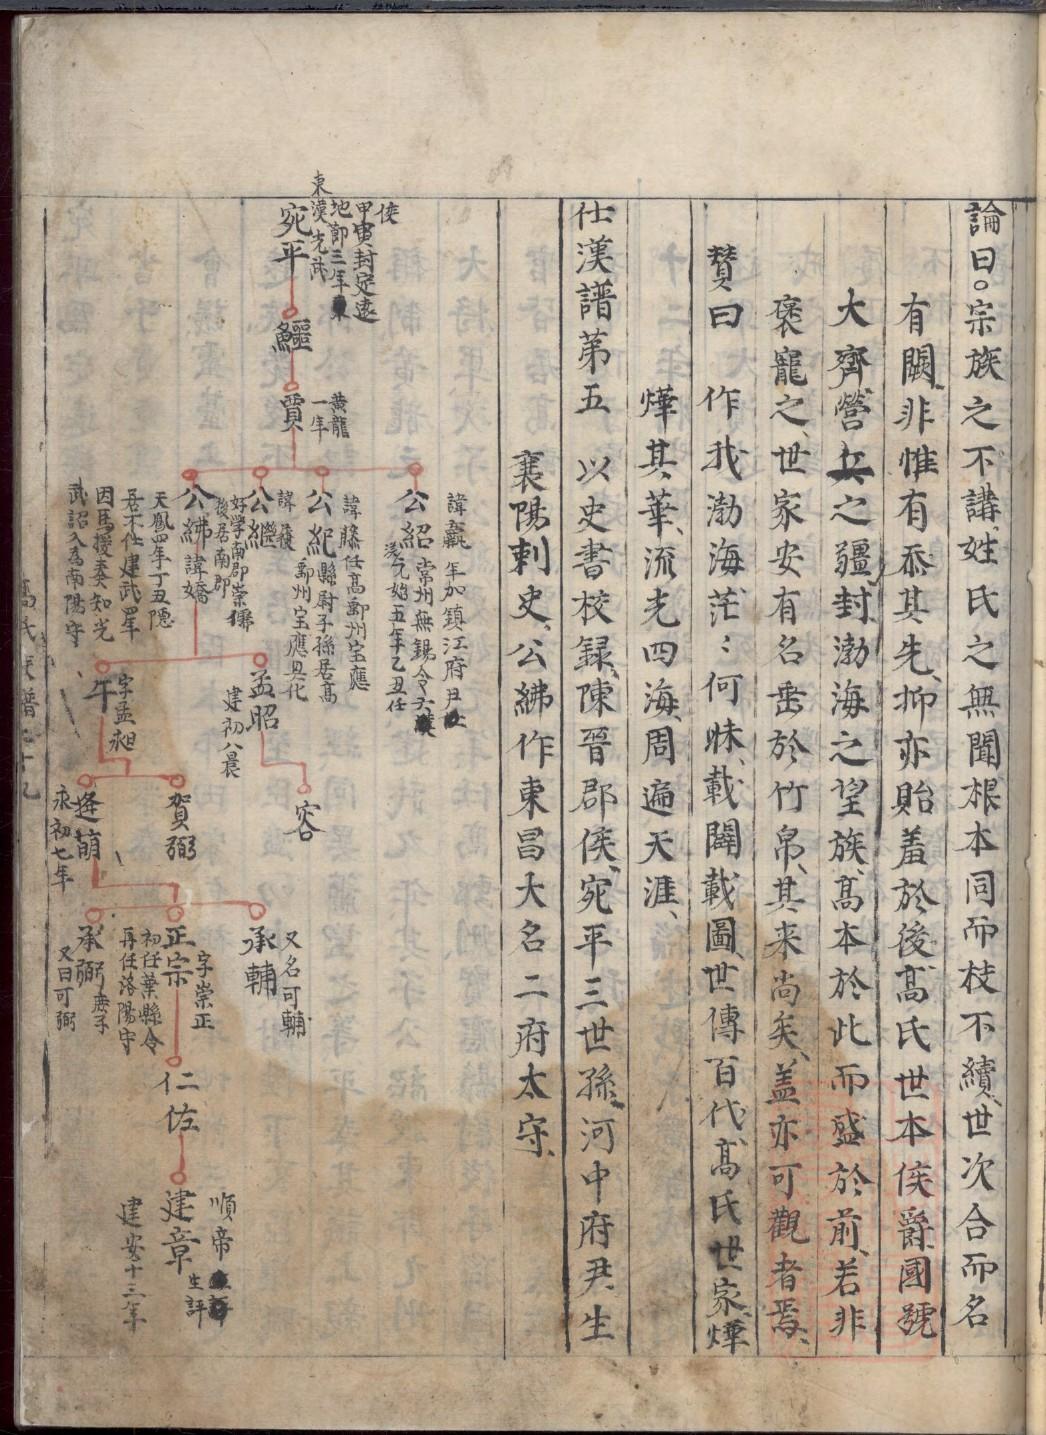 論曰。宗族之不講、姓氏之無聞、根本同而枝不續、世次合而名
有闕、非惟有忝其先、抑亦貽羞於後、髙氏世本侯爵國號
大齊、營丘之疆、封渤海之望族、髙本於此而盛於前、若非
褒寵之、世家安有名垂於竹帛、其来尚矣、盖亦可觀者焉、
賛曰　作我渤海、茫〻何昧、載闢載圖、世傳百代、髙氏世家、燁
燁其華、流光四海、周遍天涯、
仕漢譜第五　以史書校録、陳晉郡侯、宛平三世孫、河中府尹生
襄陽刺史、公紼作東昌大名二府太守、
侯
甲寅封定遠
地節三年東
東漢光武
宛平
鱷
賈
黃龍
一年
公紹
諱
年加鎮江府尹
常州無錫令
元始五年乙丑任
公紀
諱滕任髙郵州宝應
縣尉子孫居髙
郵州宝應興化
公繼
諱
好學南郡崇儒
後居南郡
公紼
諱嬌
天鳳四年丁丑隱
吾不仕建武四年
因馬援奏知光
武詔入為南陽守
孟昭
建初八㫳
午
字孟昶
容
賀弼
逢萌
永初七年
承輔
又名可輔
正宗
字崇正
初任葉縣令
再任洛陽守
承弼
庶子
又曰可弼
仁佐
建章
順帝
生評
建安十三年